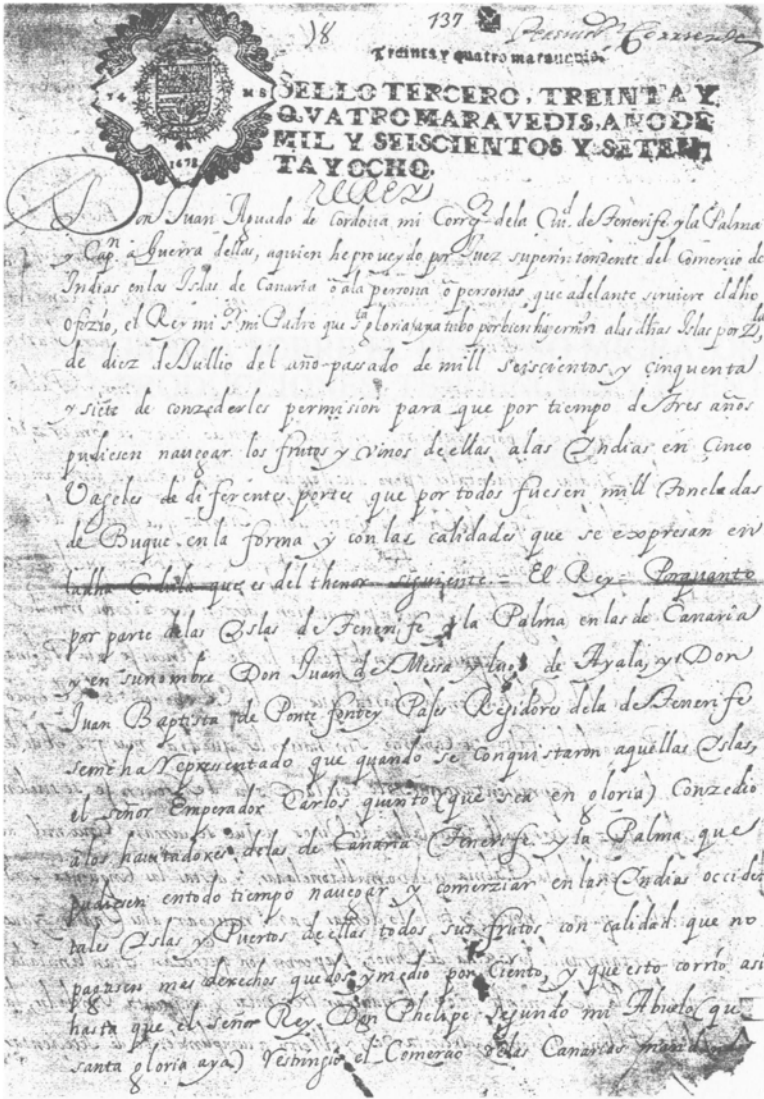 18 137
Treinta y quatro marauedis.
SELLO TERCERO, TREINTA Y
QVATRO MARAVEDIS, AÑO DE
MIL Y SEISCIENTOS Y SETEN
TA Y OCHO.
1678
El Rey
Don Juan Aguado de Cordoua mi Corregr. dela Ciud. de Tenerife, y la Palma
y Capn. a Guerra dellas, aquien he proueydo por Juez superintendente del Comercio de
Indias en las Islas de Canaria ô ala persona ô personas, que adelante siruiere el dho
ofizio, el Rey mi Sr. mi Padre que sta. gloria aya tubo por bien alas dhas Islas por Zla,
de diez de Jullio del año passado de mill seiscientos y cinquenta
y siete de conzederles permision para que por tiempo de tres años
pudiesen nauegar los frutos y vinos de ellas alas Indias en Cinco
Vageles de diferentes portes que por todos fuesen mill toneladas
de Buque en la forma y con las calidades que se expresan en
la dha Cedula que es del thenor siguiente = El Rey = Porquanto
por parte delas Islas de Tenerife y la Palma en las de Canaria
y en su nombre Don Juan de Messa y lugo de Ayala, y Don
Juan Baptista de Ponte fonte y Pajes Regidores dela de Tenerife
seme ha Representado que quando se conquistaron aquellas Islas,
el señor Emperador Carlos quinto (que sea en gloria) Conzedio
álos hauitadores delas de Canaria Tenerife y la Palma que
pudiesen en todo tiempo nauegar y comerziar en las Indias occiden
tales Islas y Puertos de ellas todos sus frutos con calidad que no
pagasen mas derechos que dos y medio por Ciento, y que esto corrio asi
hasta que el señor Rey Don Phelipe segundo mi Abuelo (que
santa gloria aya) Restingio el Comercio delas Canarias mandando